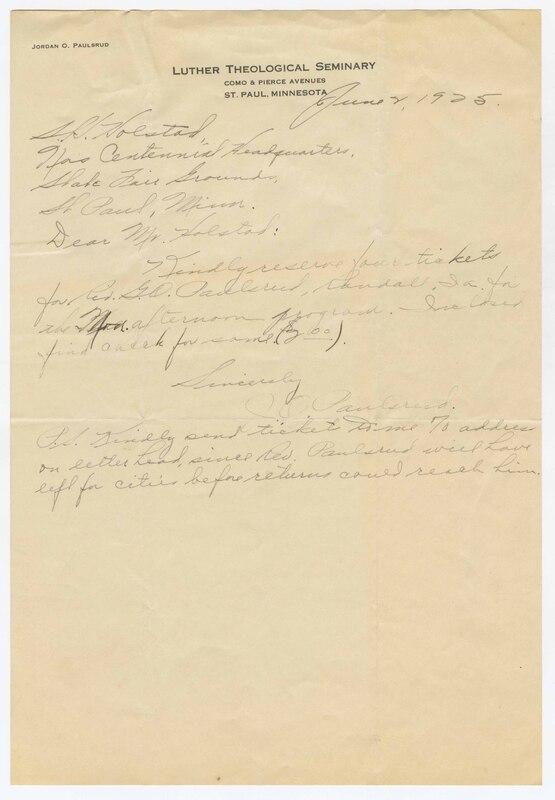 JORDAN O. PAULSRUD
LUTHER THEOLOGICAL SEMINARY
COMO & PIERCE AVENUES
ST. PAUL, MINNESOTA
June 2, 1925.
S. H. Holstad,
Nors Centennial Headquarters,
State Fair Grounds,
St Paul, Minn.
Dear Mr. Holstad:
Kindly reserve four tickets
for Rev. G.O. Paulsrud, Randall, Ia. for
the Mon. afternoon program. Inclosed
find check for same ($2.00).
Sincerely
J.O. Paulsrud.
P.S. Kindly send tickets to me to address
on letter head, since Rev. Paulsrud will have
left for cities before returns could reach him.